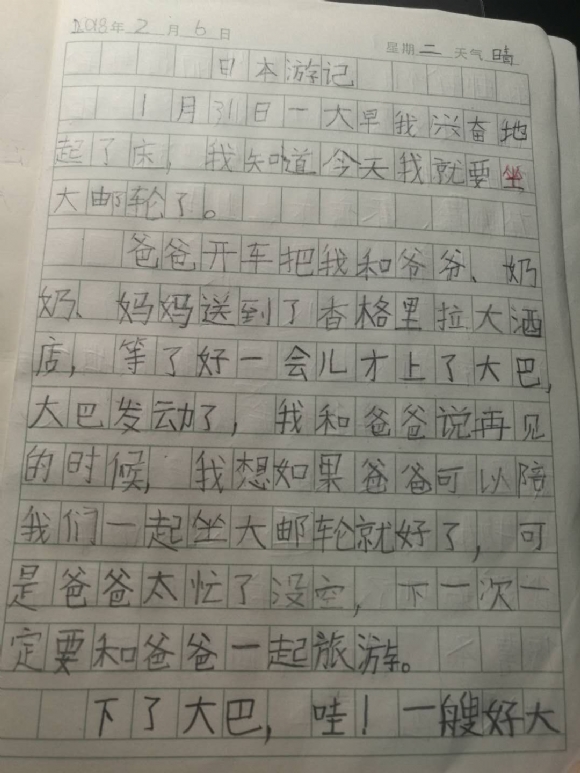 2018年2月6日
星期二 天气晴
日本游记
1月31日一大早我兴奋地
起了床，我知道今天我就要坐
大邮轮了。
爸爸开车把我和爷爷、奶
奶、妈妈送到了香格里拉大酒
店，等了好一会儿才上了大巴，
大巴发动了，我和爸爸说再见
的时候，我想如果爸爸可以陪
我们一起坐大邮轮就好了，可
是爸爸太忙了没空，下一次一
定要和爸爸一起旅游。
下了大巴，哇！一艘好大